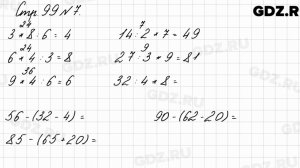 Стр. 99 № 7.
GDZ.RU
24
3 * 8 : 6 = 4
7
14 : 2 * 7 = 49
24
6 * 4 : 3 = 8
9
27 : 3 * 9 = 81
36
9 * 4 : 6 = 6
32 : 4 * 8 =
56 - (32 - 4) =
90 - (62 - 20) =
85 - (65 + 20) =